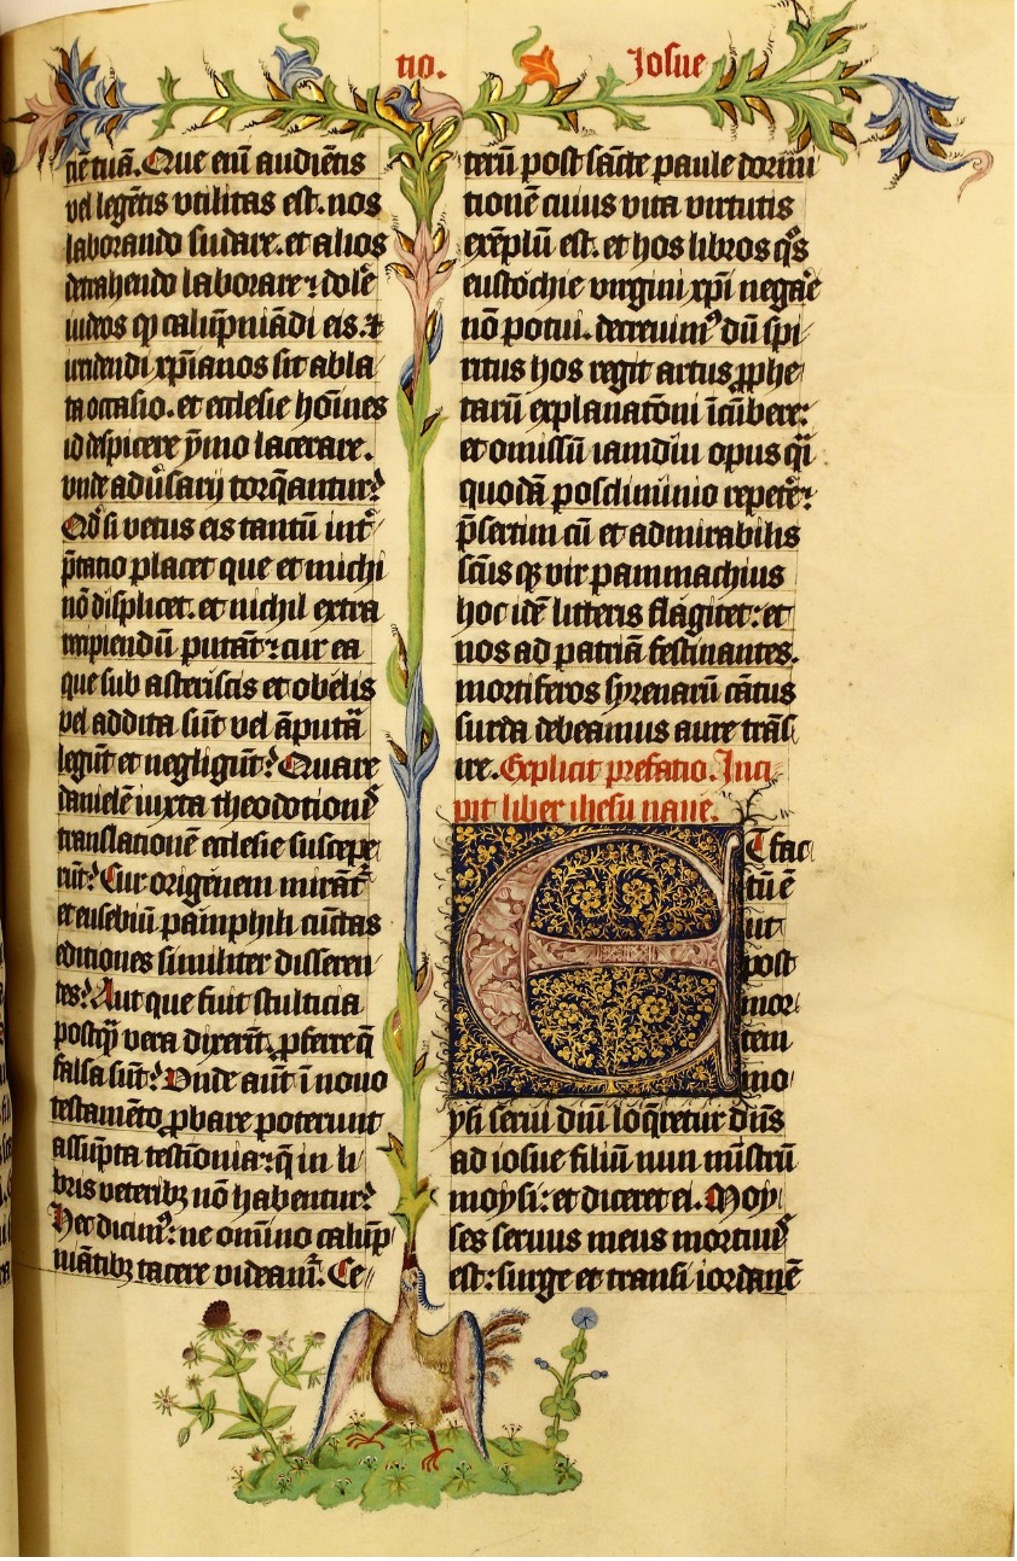 tio. Iosue
nē tuā. Que eni audiētis
vel legētis vtilitas est. nos
laborando sudare. et alios
detrahendo laborare: dolē
iudeos qꝫ calūpniādi eis. ⁊
irridendi xp̄ianos sit abla
ta occasio. et ecclesie hoīnes
id despicere ymo lacerare.
vnde aduūsarij torq̄antur?
Qd si vetus eis tantū int
p̄tatio placet que et michi
nō displicet. et nichil extra
recipiendū putāt: cur ea
que sub asteriscis et obelis
vel addita sūt vel āputā
legūt et negligūt? Quare
danielē iuxta theodotionē
translationē ecclesie suscepe
rūt? Cur origenem mirāt
et eusebiū pāmphili cūctas
editiones similiter disseren
tes? Aut que fuit stulticia
postq̄ vera dixerīt. ꝓferre q̄
falsa sūt? Vnde aūt ī nouo
testamēto ꝓbare poterunt
assūpta testīonia: q̄ in li
bris veteribꝫ nō habentur?
Hec dicimꝰ: ne omnīno calūp
niātibꝫ tacere videamꝰ. Ce
terū post sācte paule dormi
tionē cuius vita virtutis
exēplū est. et hos libros qͦs
eustochie virgini xp̄i negaē
nō potui. decreuimꝰ dū spi
ritus hos regit artus ꝓphe
tarū explanatōni īcūbere:
et omissū iamdiu opus qͣi
quodā postliminio repetē:
p̄sertim cū et admirabilis
sāusqꝫ vir pammachius
hoc idē litteris flagitet: et
nos ad patriā festinantes.
mortiferos syrenarū cātus
surda debeamus aure trās
ire. Explicit prefatio. Inci
pit liber ihesu naue.
ET fac
tū ē
ut
post
mor
tem
mo
ysi serui dūi loq̄retur dūs
ad iosue filiū nun mīstrū
moysi: et diceret ei. Moy
ses seruus meus mortuꝰ
est: surge et transi iordanē